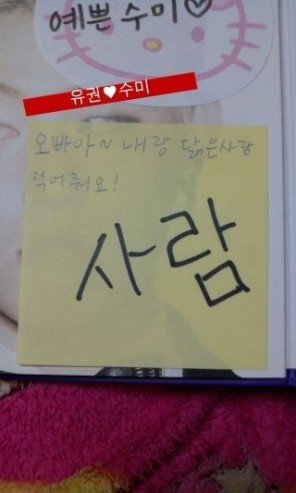 예쁜 수미♡
유권♥수미
오빠아~ 내랑 닮은사람
적어줘요!
사람